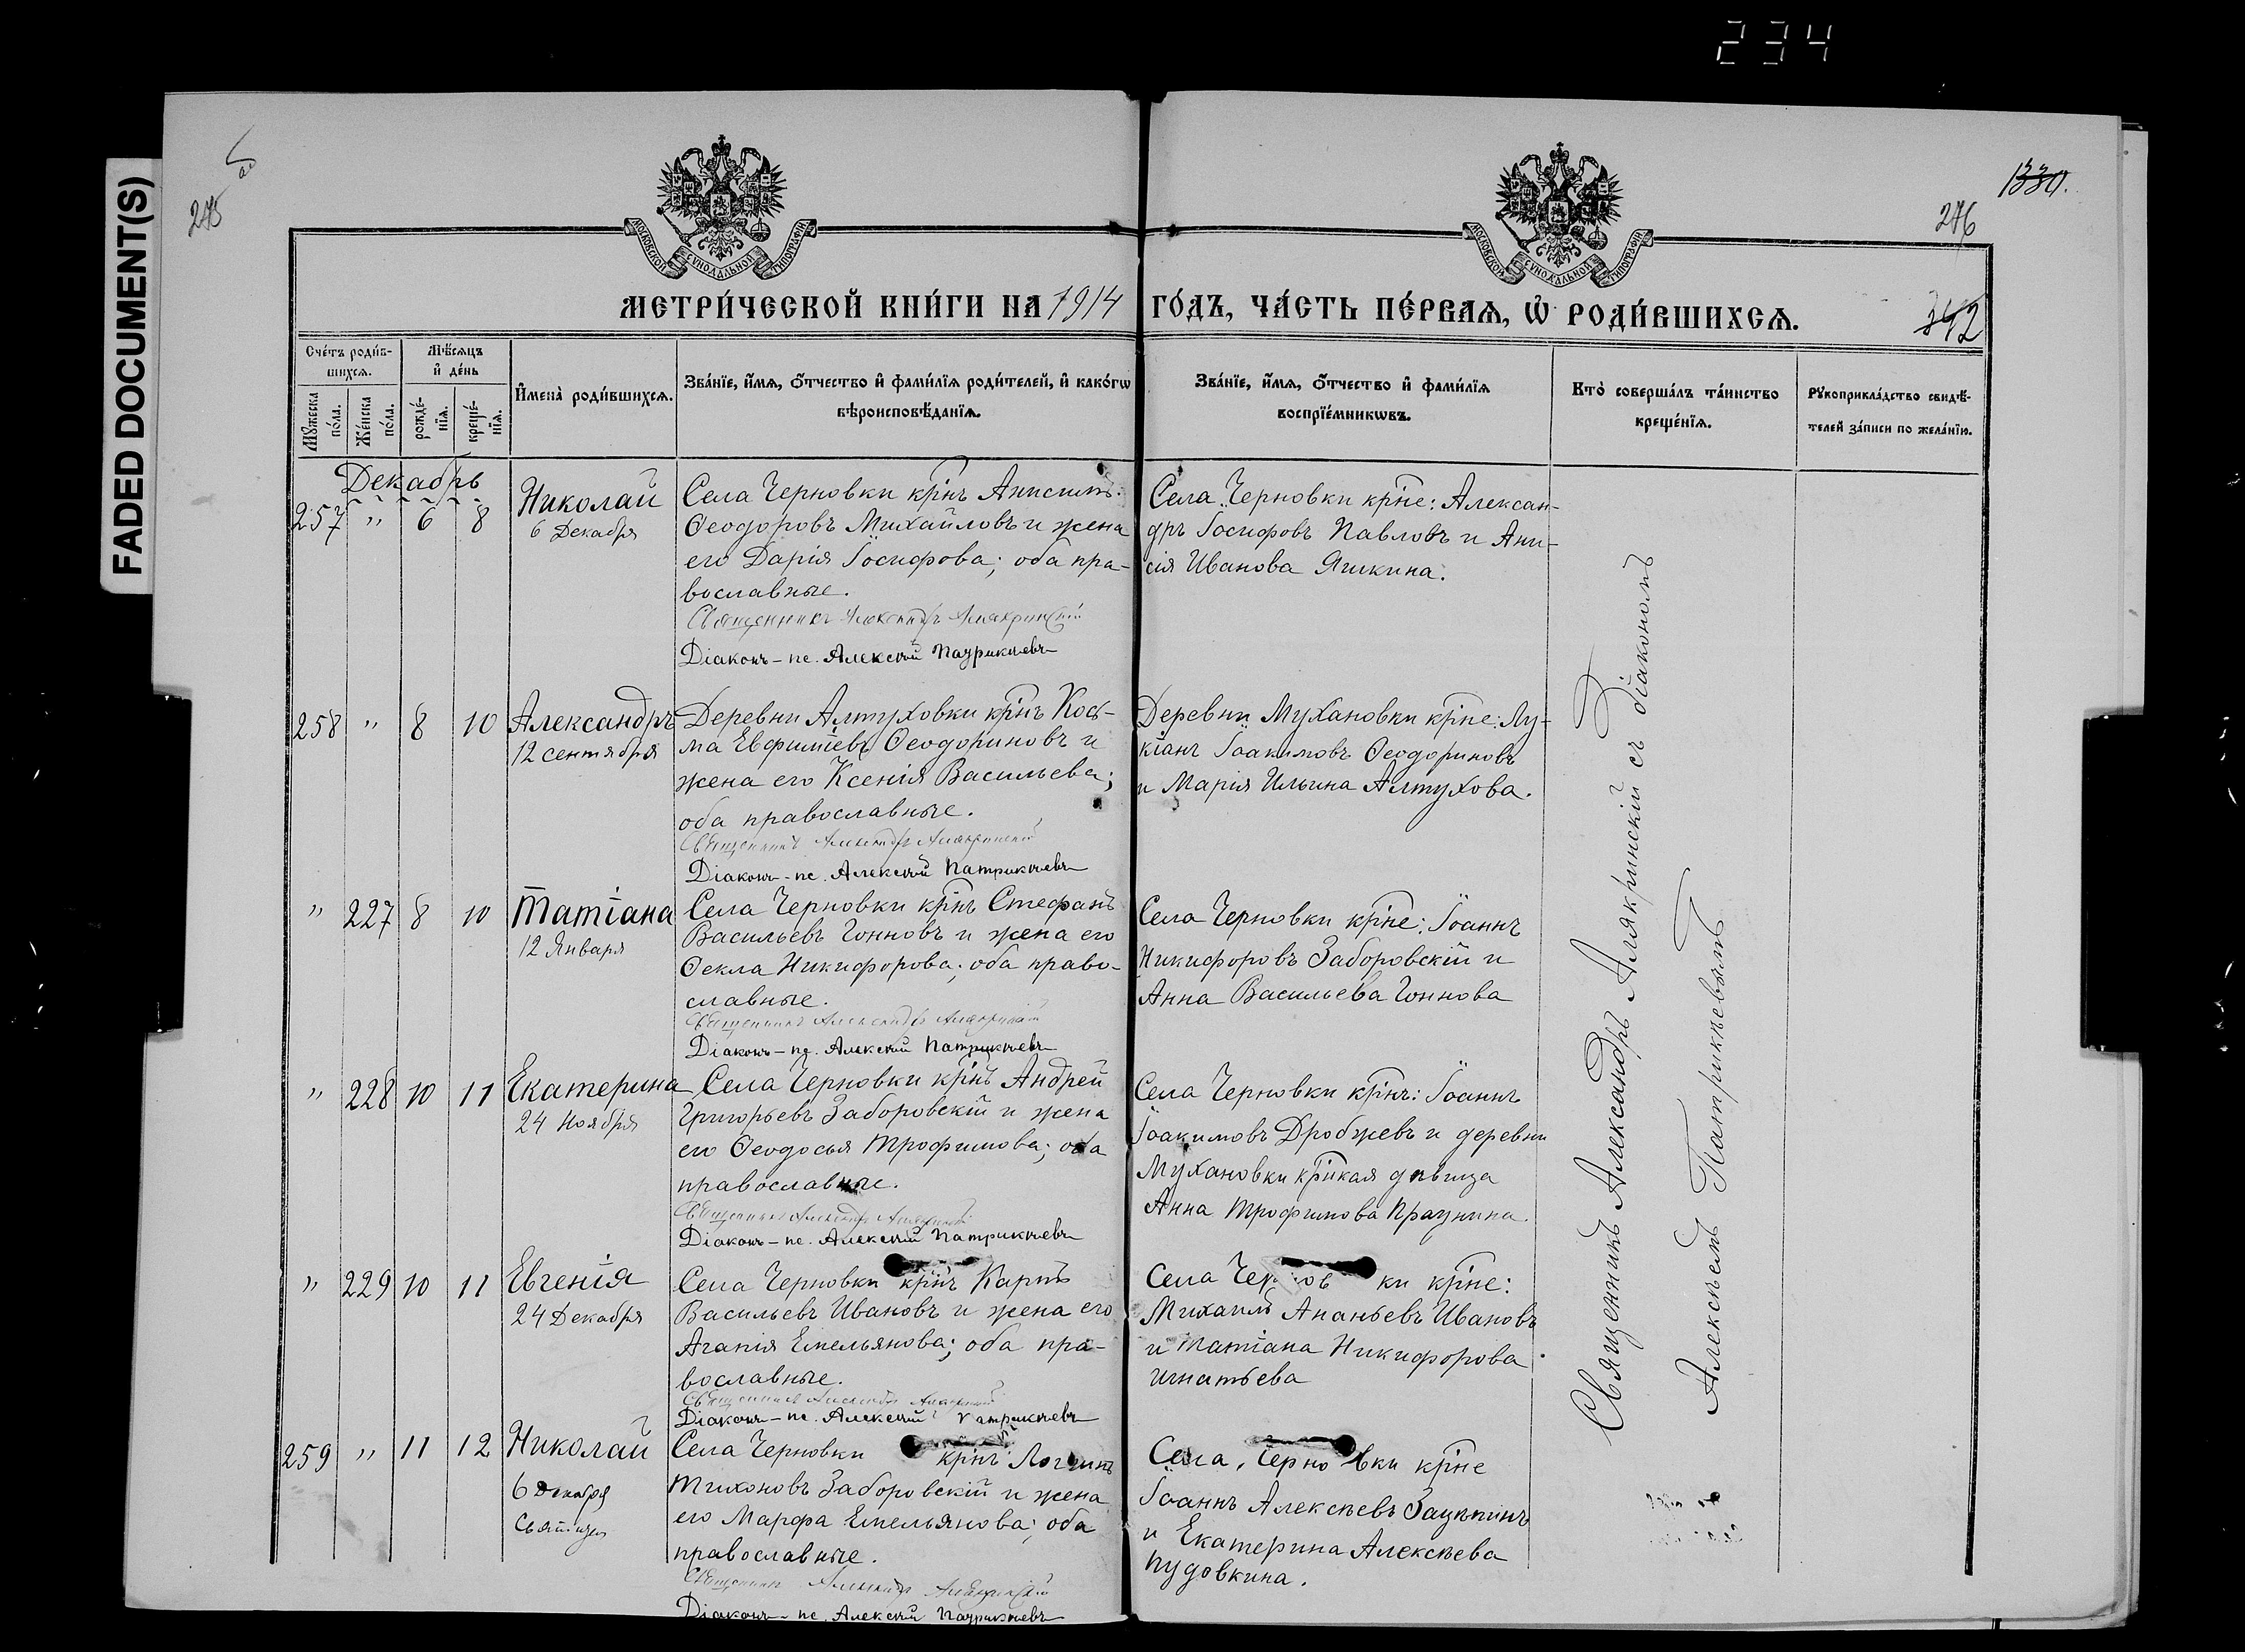 234
FADED DOCUMENT(S)
275
1330.
276
342
МОСКОВСКОЙ СѴНОДАЛЬНОЙ ТИПОГРАФІИ
МОСКОВСКОЙ СѴНОДАЛЬНОЙ ТИПОГРАФІИ
МЕТРИ́ЧЕСКОЙ КНИ́ГИ НА 1914 ГО́ДЪ, ЧА́СТЬ ПЕ́РВАѦ, Ѽ РОДИ́ВШИХСѦ.
Сче́тъ роди́в-
шихсѧ.
Мѣ́сѧцъ
и҆ де́нь
Мꙋ́жеска по́ла.
Же́нска по́ла.
рожде́-нїѧ.
креще́-нїѧ.
И҆мена̀ роди́вшихсѧ.
Зва́нїе, и҆́мѧ, ѻ҆́тчество и҆ фами́лїѧ роди́телей, и҆ како́гѡ
вѣроисповѣ́данїѧ.
Зва́нїе, и҆́мѧ, ѻ҆́тчество и҆ фами́лїѧ
воспрїе́мникѡвъ.
Кто̀ соверша́лъ та́инство
креще́нїѧ.
Рꙋкоприкла́дство свидѣ́-
телей за́писи по жела́нїю.
Декабрь
257 " 6 8 Николай
6 Декабря
Села Черновки кр҃нъ Анисимъ
Ѳеодоровъ Михайловъ и жена
его Дарія Іосифова; оба пра-
вославные.
Священникъ Александръ Алякринскій
Діаконъ-пс. Алексѣй Патрикѣевъ
Села Черновки кр҃не: Алексан-
дръ Іосифовъ Павловъ и Ани-
сія Иванова Яшкина.
258 " 8 10 Александръ
12 сентября
Деревни Алтуховки кр҃нъ Кось-
ма Евфиміевъ Ѳеодориновъ и
жена его Ксенія Васильева;
оба православные.
Священникъ Александръ Алякринскій
Діаконъ-пс. Алексѣй Патрикѣевъ
Деревни Мухановки кр҃не: Лу-
кіанъ Іоакимовъ Ѳеодориновъ
и Марія Ильина Алтухова.
" 227 8 10 Татіана
12 Января
Села Черновки кр҃нъ Стефанъ
Васильевъ Гонновъ и жена его
Ѳекла Никифорова; оба право-
славные.
Священникъ Александръ Алякринскій
Діаконъ-пс. Алексѣй Патрикѣевъ
Села Черновки кр҃не: Іоаннъ
Никифоровъ Заборовскій и
Анна Васильева Гоннова
" 228 10 11 Екатерина
24 Ноября
Села Черновки кр҃нъ Андрей
Григорьевъ Заборовскій и жена
его Ѳеодосья Трофимова; оба
православные.
Священникъ Александръ Алякринскій
Діаконъ-пс. Алексѣй Патрикѣевъ
Села Черновки кр҃нъ: Іоаннъ
Іоакимовъ Дробжевъ и деревни
Мухановки кр҃нкая дѣвица
Анна Трофимова
" 229 10 11 Евгенія
24 Декабря
Села Черновки кр҃нъ Карпъ
Васильевъ Ивановъ и жена его
Агапія Емельянова; оба пра-
вославные.
Священникъ Александръ Алякринскій
Діаконъ-пс. Алексѣй Патрикѣевъ
Села Черновки кр҃не:
Михаилъ Ананьевъ Ивановъ
и Татіана Никифорова
Игнатьева
259 " 11 12 Николай
6 Декабря
Села Черновки кр҃нъ Логгинъ
Тихоновъ Заборовскій и жена
его Марфа Емельянова; оба
православные.
Священникъ Александръ Алякринскій
Діаконъ-пс. Алексѣй Патрикѣевъ
Села Черновки кр҃не
Іоаннъ Алексѣевъ Зацѣпинъ
и Екатерина Алексѣева
Пудовкина.
Священникъ Александръ Алякринскій съ діакономъ
Алексѣемъ Патрикѣевымъ